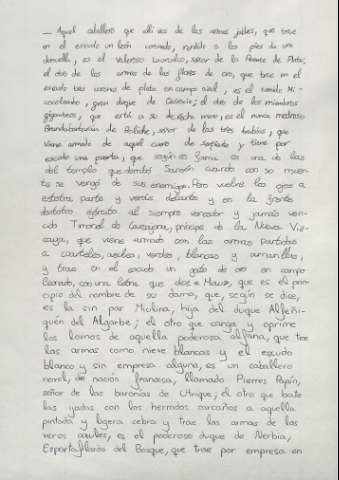 — Aquel caballero que allí ves de las armas jaldes, que trae
en el escudo un león coronado, rendido a los pies de una
doncella, es el valeroso Laurcalco, señor de la Puente de Plata;
el otro de las armas de las flores de oro, que trae en el
escudo tres coronas de plata en campo azul, es el temido Mi-
cocolembo, gran duque de Quirocia; el otro de los miembros
giganteos, que está a su derecha mano, es el nunca medroso
Brandabarbarán de Boliche, señor de las tres Arabias, que
viene armado de aquel cuero de serpiente y tiene por
escudo una puerta, que según es fama es una de las
del templo que derribó Sansón cuando con su muer-
te se vengó de sus enemigos. Pero vuelve los ojos a
estotra parte y verás delante y en la frente
destotro ejército al siempre vencedor y jamás ven-
cido Timonel de Carcajona, príncipe de la Nueva Viz-
caya, que viene armado con las armas partidas
a cuarteles, azules, verdes, blancas y amarillas,
y trae en el escudo un gato de oro en campo
leonado, con una letra que dice: Miau, que es el prin-
cipio del nombre de su dama, que, según se dice,
es la sin par Miulina, hija del duque Alfeñi-
quén del Algarbe; el otro que carga y oprime
los lomos de aquella poderosa alfana, que trae
las armas como nieve blancas y el escudo
blanco y sin empresa alguna, es un caballero
novel, de nación francesa, llamado Pierres Papín,
señor de las baronías de Utrique; el otro que bate
las ijadas con los herrados carcaños a aquella
pintada y ligera cebra y trae las armas de los
veros azules, es el poderoso duque de Nerbia,
Espartafilardo del Bosque, que trae por empresa en